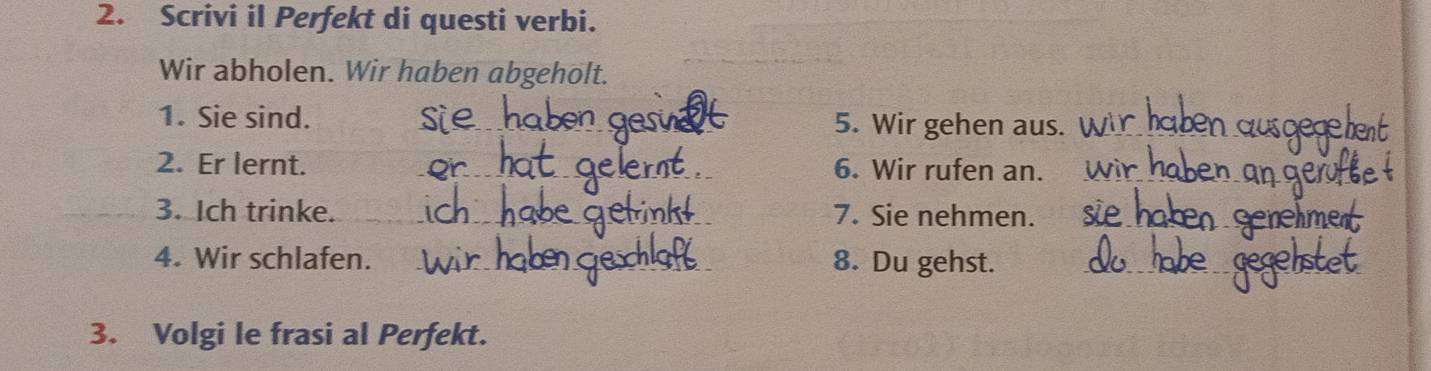 2. Scrivi il Perfekt di questi verbi.
Wir abholen. Wir haben abgeholt.
1. Sie sind. sie haben gesindt
2. Er lernt. er hat gelernt.
3. Ich trinke. ich habe getrinkt
4. Wir schlafen. Wir haben geschlaft
5. Wir gehen aus. Wir haben ausgegehent
6. Wir rufen an. wir haben angeruftet
7. Sie nehmen. sie haben genehment
8. Du gehst. du habe gegehstet
3. Volgi le frasi al Perfekt.